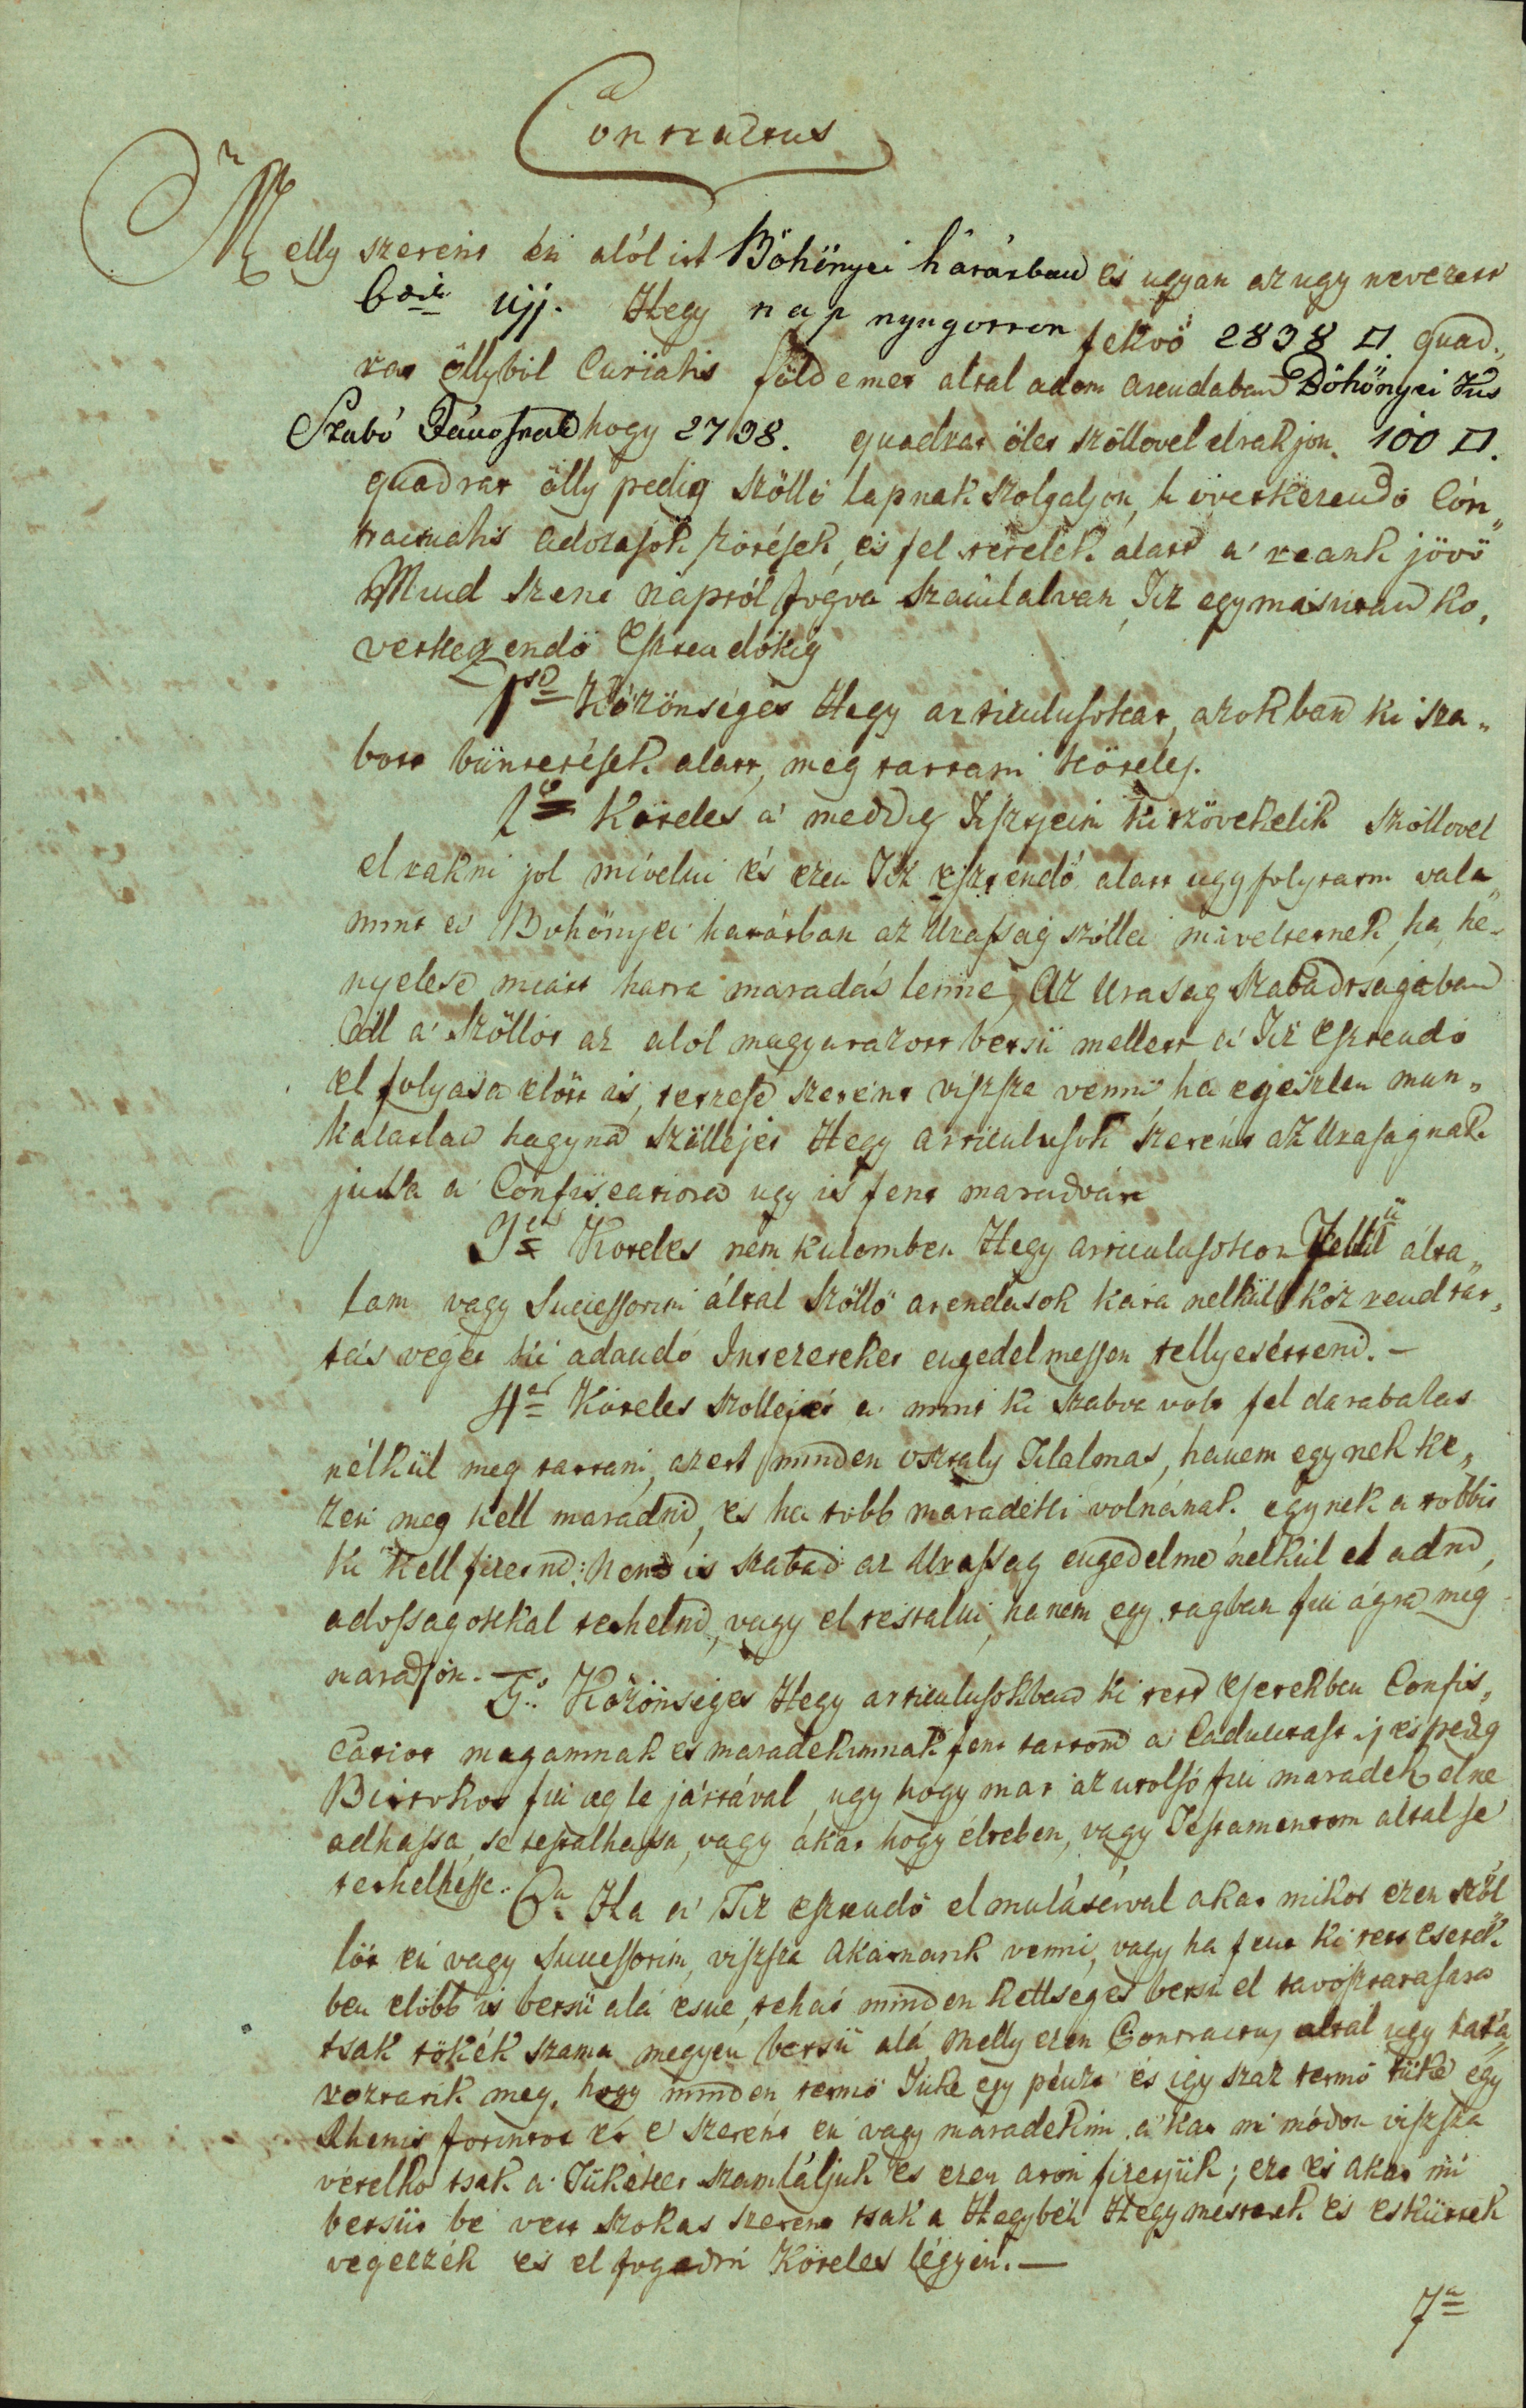 Contractus
Melly szerént én alól irt Böhönyei határban és ugyan az ugy nevezett
újj. Hegy nap nyugotton fekvö 2838 □. quad„
rat öllyböl Curiális földemet altal adom arendaban Böhönyei Kis
Szabó Jánosnak hogy 2738. quadrat ölet szöllovel el rakjon. 100 □.
quadrat ölly pedig szöllö lapnak szolgaljon, k övetkezendö Con„
tractualis adozások fizetések, és fel tetelek alatt a' reank jövö
Mind Szent naptól fogva szamlalvan, Tiz egymásutan kö„
vetkezendö Esztendökig
1so Közönséges Hegy articulusokat, azokban ki sza„
bott büntetések alatt, meg tartani köteles.
2o Köteles a' meddig Tiszjeim ki szövetkelik szöllovel
el rakni jol mivelni és ezen Tiz esztendö alatt ugy folytatni vala„
mint a' Böhönyei határban az Urasság szöllei miveltetnek, ha he„
nyelese miatt hatra maradás lenne, Az Urasag Szabadságaban
áll a' szöllöt az alol magyarazott betsü mellett a' Tiz Esztendö
el folyasa elött is, tettzese szerént viszsza venni ha egészlen mun„
kalatlan hagyna szöllejét Hegy articulusok szerént az Urasagnak
jussa a' Confiscatiora ugy is fent maradván
3o Köteles nem kulomben Hegy articulusokon kivül álta„
lam vagy Successorim által szöllö arendasok kára nelkül köz rend tar„
tás végét ki adando Intezeteket engedelmessen tellyesétteni. —
4er Köteles szollejét a' mint ki szabva volt fel darabalas
nélkül meg tartani, azert minden osztaly Tilalmas, hanem egynek ke„
zen meg kell maradni, es ha több maradéki volnának egynek a' tobbit
ki kell fizetni: nem is szabad az Urasság engedelme nelkül el adni,
adossagokkal terhelni, vagy el testalni, hanem egy tagban fiu ágra meg
maradjon. — 5o Közönséges Hegy articulusokban ki tett esetekben Confis„
catiot magamnak es maradekimnak fent tartom a' Caducitast is és pedig
Birtokos fiu ag le jártával, ugy hogy mar az utolsó fiu maradek el ne
adhassa, se testalhassa, vagy ákar hogy életeben, vagy Testamentom altal se
terhelhesse. 6a Ha a' Tiz esztendö el mulásával akar mikor ezen szöl
löt én vagy Successorim, viszsza akarnank venni, vagy ha fent ki tett esetek„
ben elöbb is betsü alá esne, tehát minden kettséges betsü el tavosztatasara
tsak tökék szama megyen betsü alá, melly ezen Contractus altal ugy hatá„
roztatik meg, hogy minden termö Tüke egy pénzt és igy szaz termö tüke egy
Rhenis forintot és e' szerént én vagy maradekim a' kar mi módon viszsza
vételkor tsak a' Tükeket szamláljuk és ezen áron fizetjük; ezt és akar mi
betsüt be vett szokas szerent tsak a Hegybéli Hegymesterek és esküttek
vegezzék és el fogadni Köteles légyen. —
7a